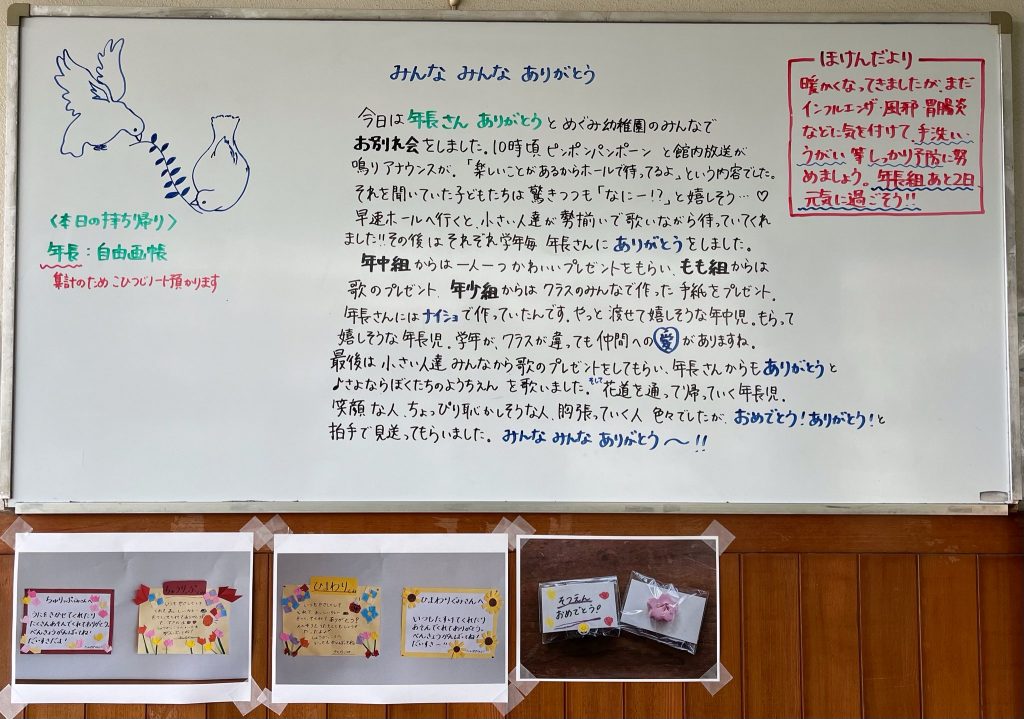 みんな みんな ありがとう
今日は 年長さん ありがとう と めぐみ幼稚園のみんなで
お別れ会をしました。10時頃 ピンポンパンポーン と館内放送が
鳴り アナウンスが、「楽しいことがあるからホールで待ってるよ」という内容でした。
それを聞いていた子どもたちは 驚きつつも「なにー!?」と嬉しそう…♡
早速ホールへ行くと、小さい人達が 勢揃いで 歌いながら 待っていてくれ
ました!!その後は それぞれ学年毎 年長さんに ありがとう をしました。
年中組からは 一人一つ かわいいプレゼントをもらい、もも組からは
歌のプレゼント、年少組からは クラスのみんなで作った 手紙をプレゼント。
年長さんには ナイショで作っていたんです。やっと 渡せて 嬉しそうな年中児。もらって
嬉しそうな年長児。学年が、クラスが 違っても 仲間への 愛 がありますね。
最後は 小さい人達 みんなから歌のプレゼントをしてもらい、年長さんからも ありがとう と
♪さよならぼくたちのようちえん を歌いました。そして 花道を通って帰っていく年長児。
笑顔な人、ちょっぴり恥かしそうな人、胸張っていく人 色々でしたが、おめでとう!ありがとう!と
拍手で見送ってもらいました。みんな みんな ありがとう〜!!
〈本日の持ち帰り〉
年長:自由画帳
集計のため こひつじノート預かります
ほけんだより
暖かくなってきましたが、まだ
インフルエンザ・風邪・胃腸炎
などに気を付けて、手洗い・
うがい 等 しっかり予防に努
めましょう。年長組あと2日、
元気に過ごそう!!
ちゅりっぷぐみさんへ
うたをきかせてくれたり
たくさんあそんでくれてありがとう。
べんきょうがんばってね!
だいすきだよ!
ひまわり
ひまわりぐみさんへ
いつもたすけてくれたり
あそんでくれてありがとう。
べんきょうがんばってね!
だいすきー!!
そつえん
おめでとう!